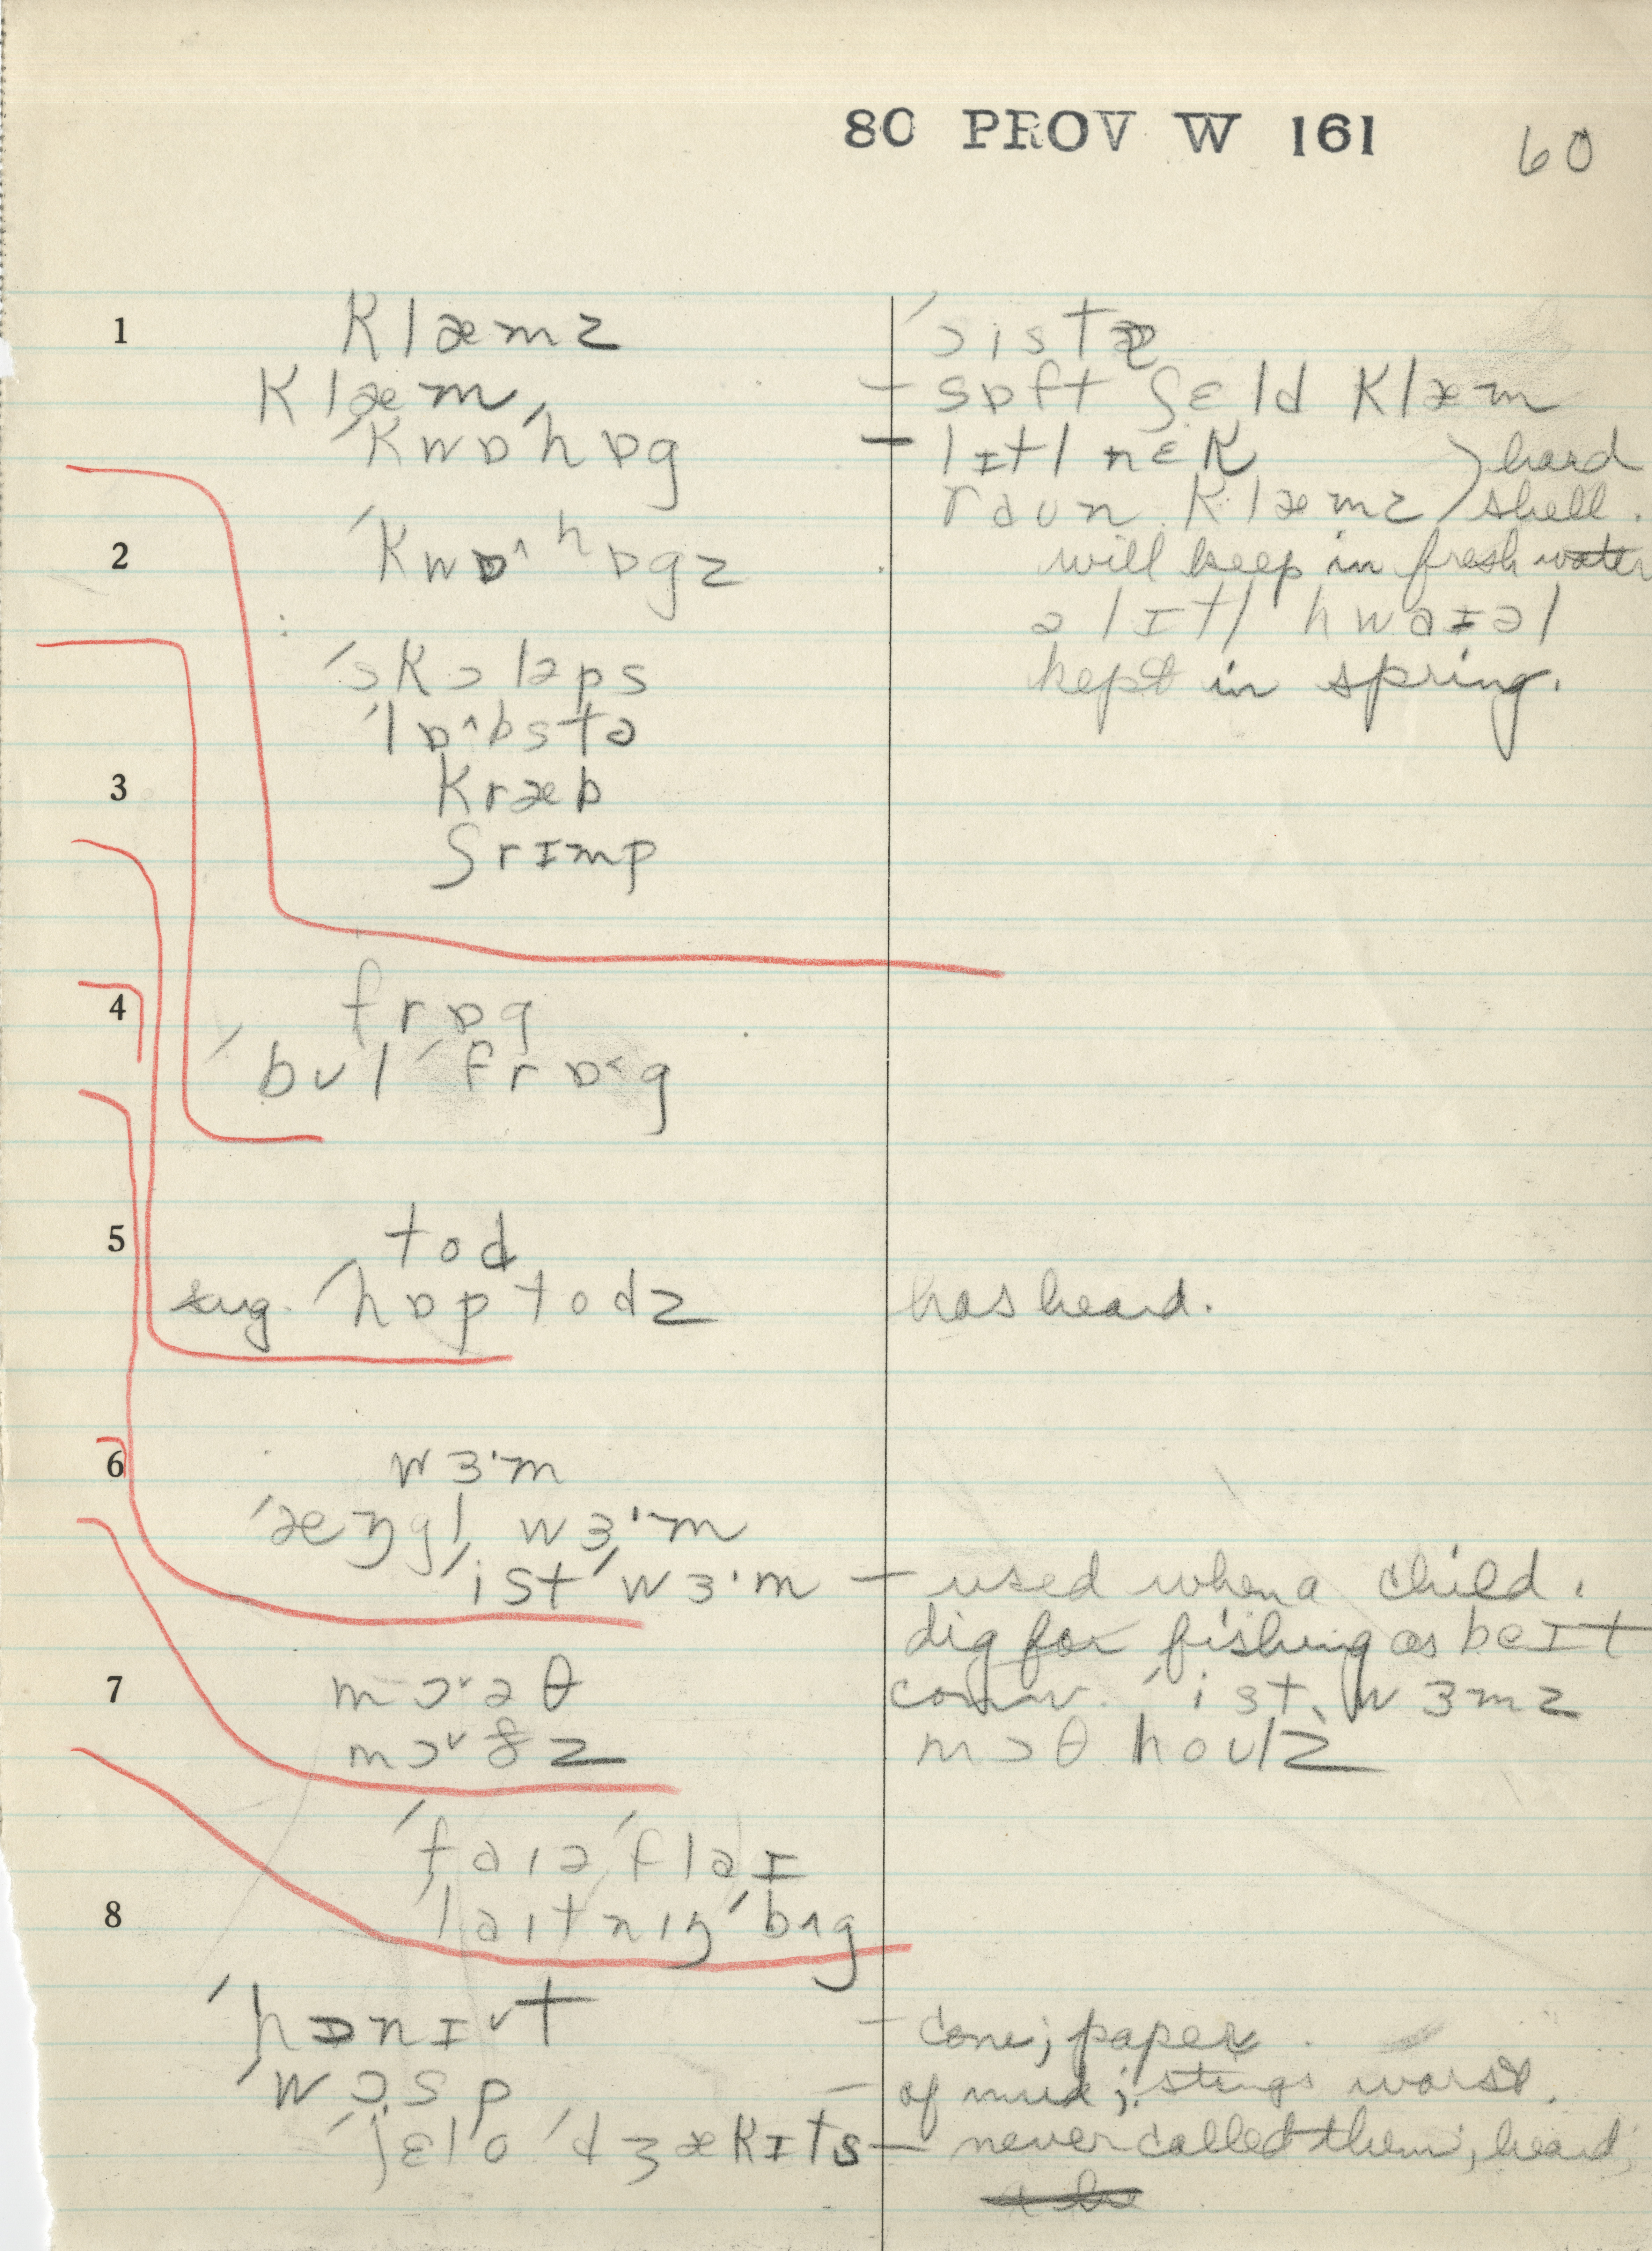 80 PROV W 161 60
1 klæmz ˈɔistɚ
klæm, – sɒft ʃɛld klæm
ˈkwɒˈhɒg – lɪtl nɛk ) hard
raun klæmz ) shell.
2 ˈkwɒ^hɒgz will keep in fresh water
ə lɪtl hwaɪəl
ˈskɔləps kept in spring.
ˈlɒ^bstə
3 kræb
ʃrɪmp
4 frɒg
ˈbʊlˈfrɒ˂g
5 tod
sug. ˈhɒptodz has heard.
6 wɜ·m
ˈæŋgl wɜ·m
ˈistˈwɜ·m – used when a child.
dig for fishing as beɪt
7 mɔ˅əθ conv. ˈist wɜmz
mɔ˅ðz mɔθ houlz
ˈfaɪəˈflaɪ
8 ˈlaɪtnɪŋˈbʌg
ˈhɔnɪ˅t – cone; paper.
ˈwɔsp – of mud; stings worst.
ˈjɛloˈdʒækɪts – never called them, heard,